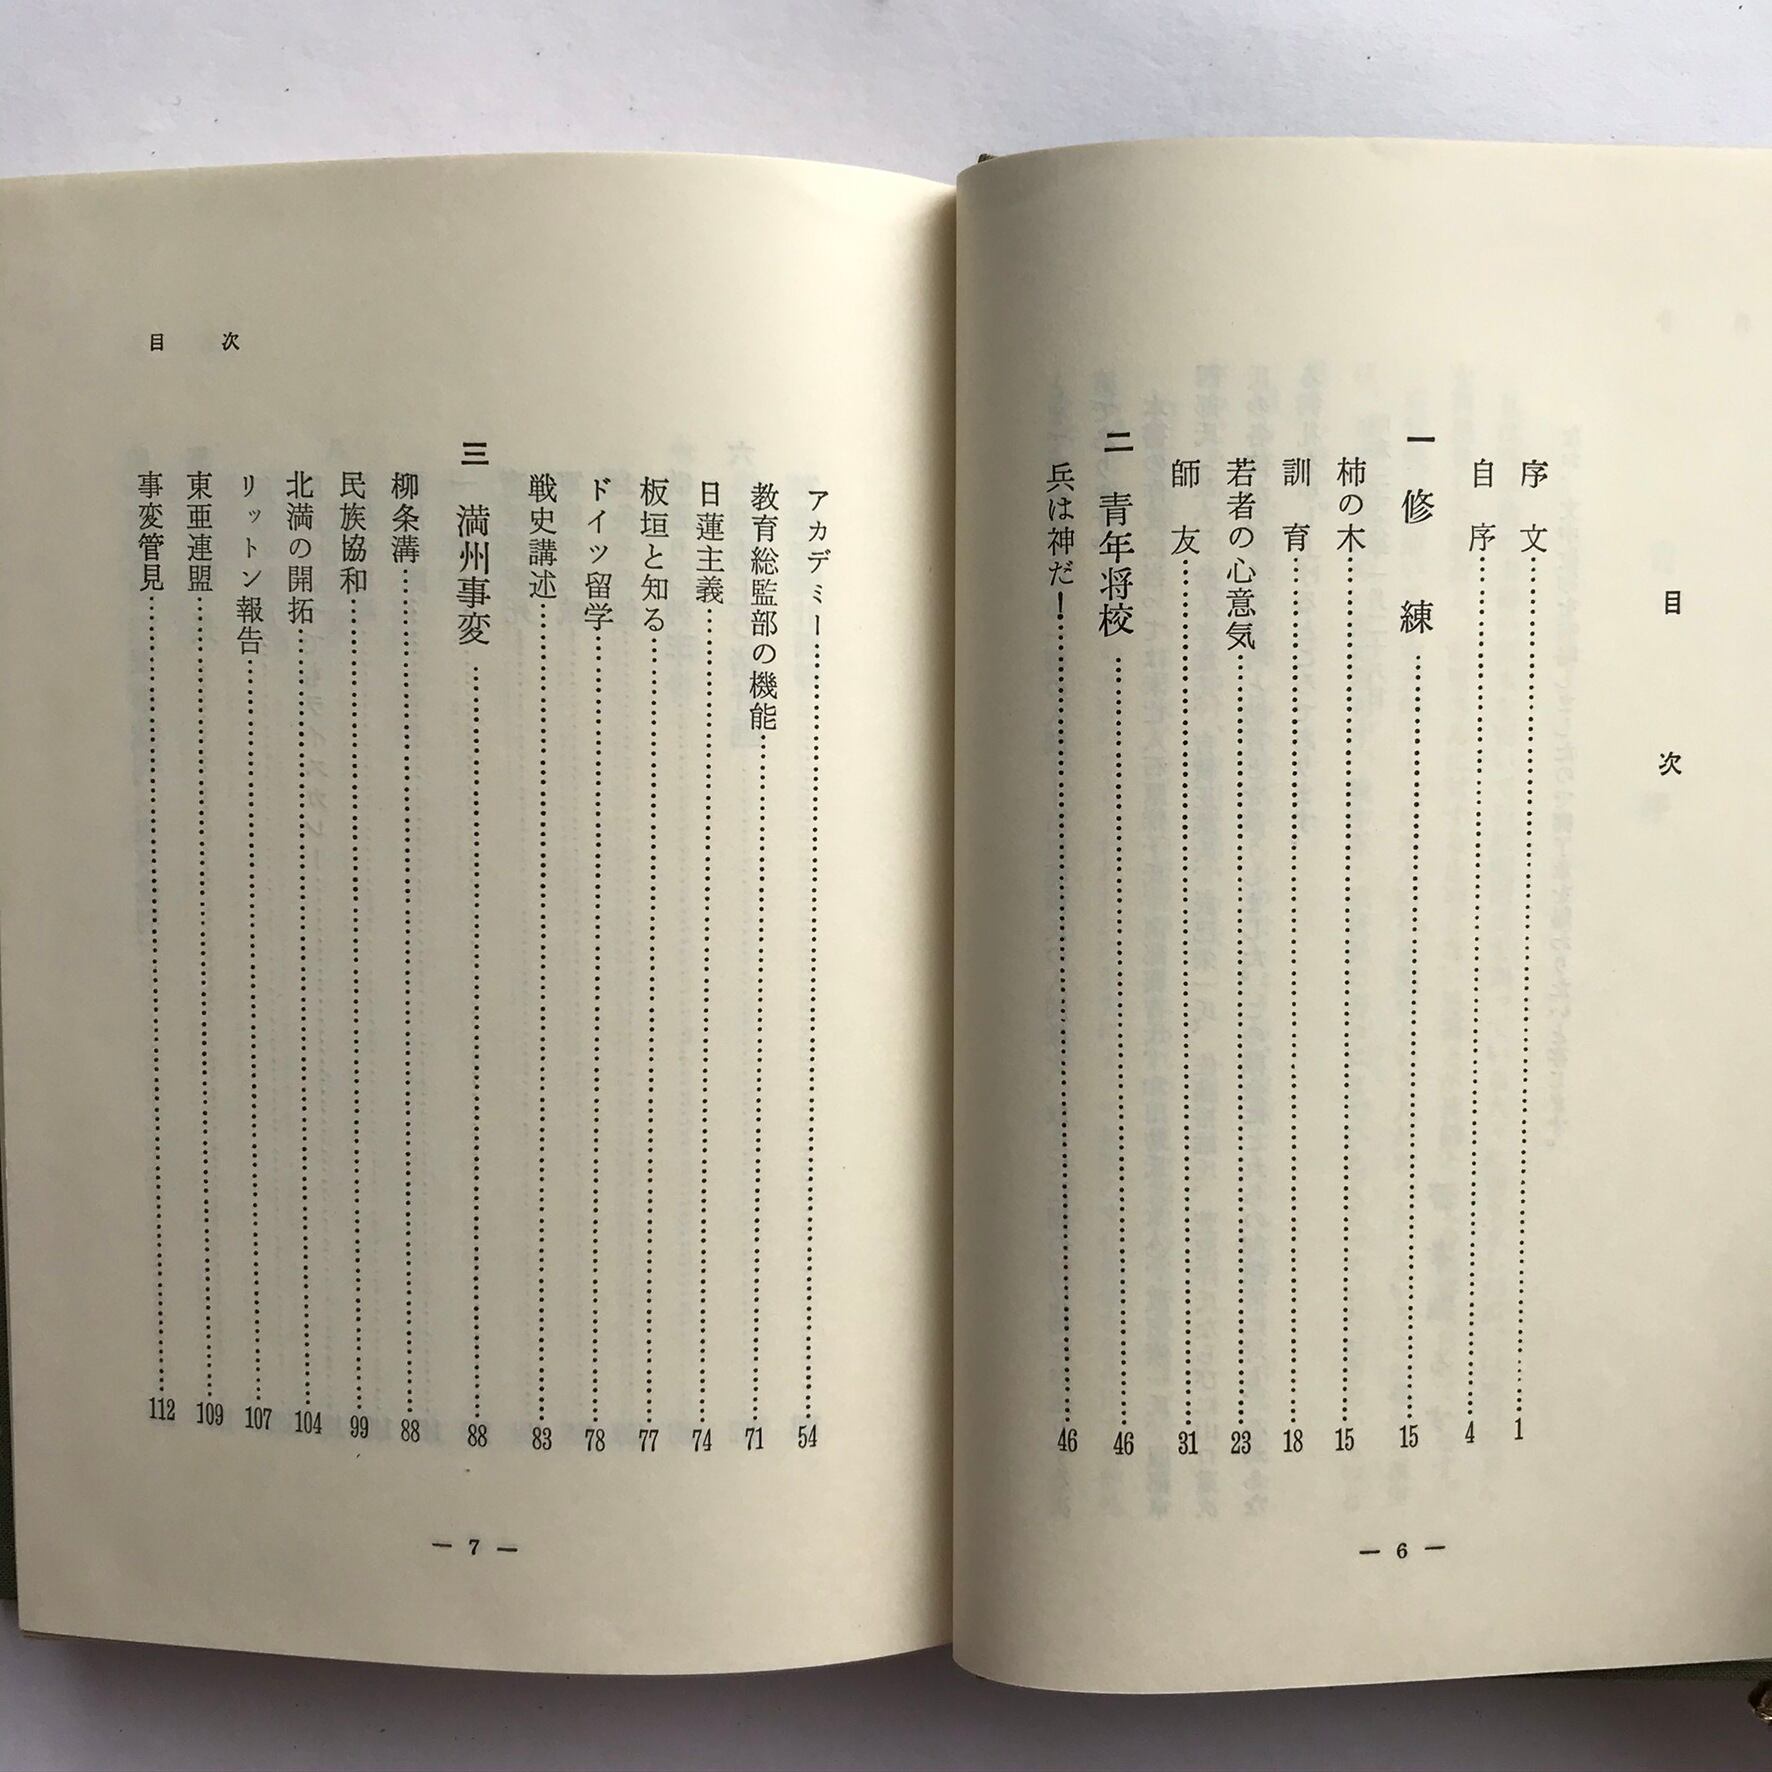 目次
序文……1
自序……4
一 修練……15
柿の木……15
訓育……18
若者の心意気……23
師友……31
二 青年将校……46
兵は神だ！……46
— 6 —
目次
アカデミー……54
教育総監部の機能……71
日蓮主義……74
板垣と知る……77
ドイツ留学……78
戦史講述……83
三 満州事変……88
柳条溝……88
民族協和……99
北満の開拓……104
リットン報告……107
東亜連盟……109
事変管見……112
— 7 —